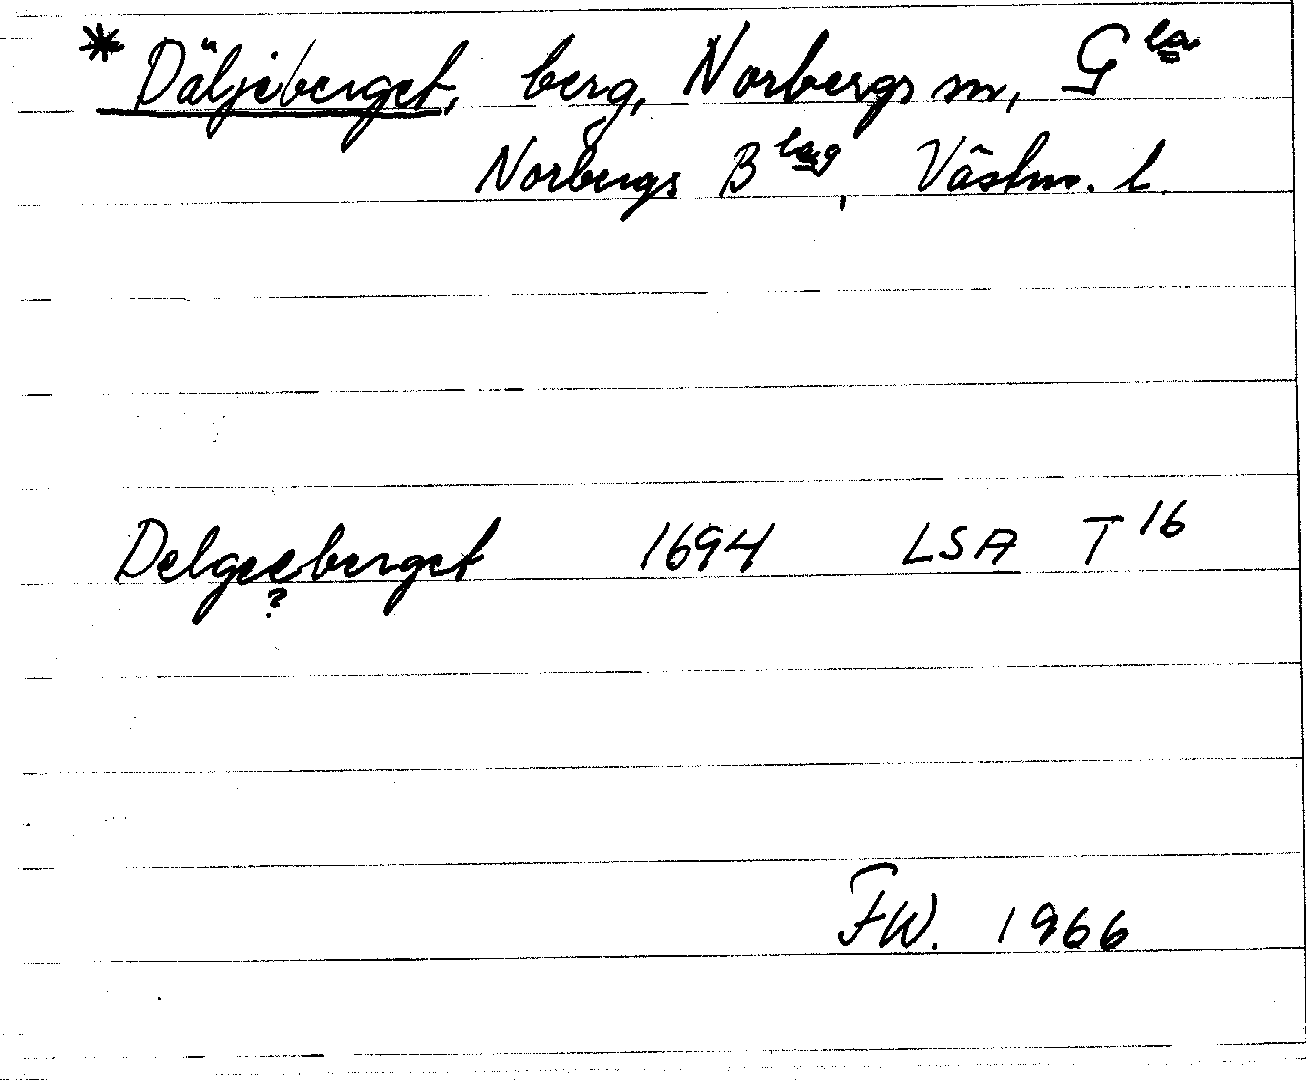 * Däljeberget, berg, Norbergs sn, G la
Norbergs B lag, Västm. l.
Delgeeberget 1694 LSA T 16
?
FW. 1966